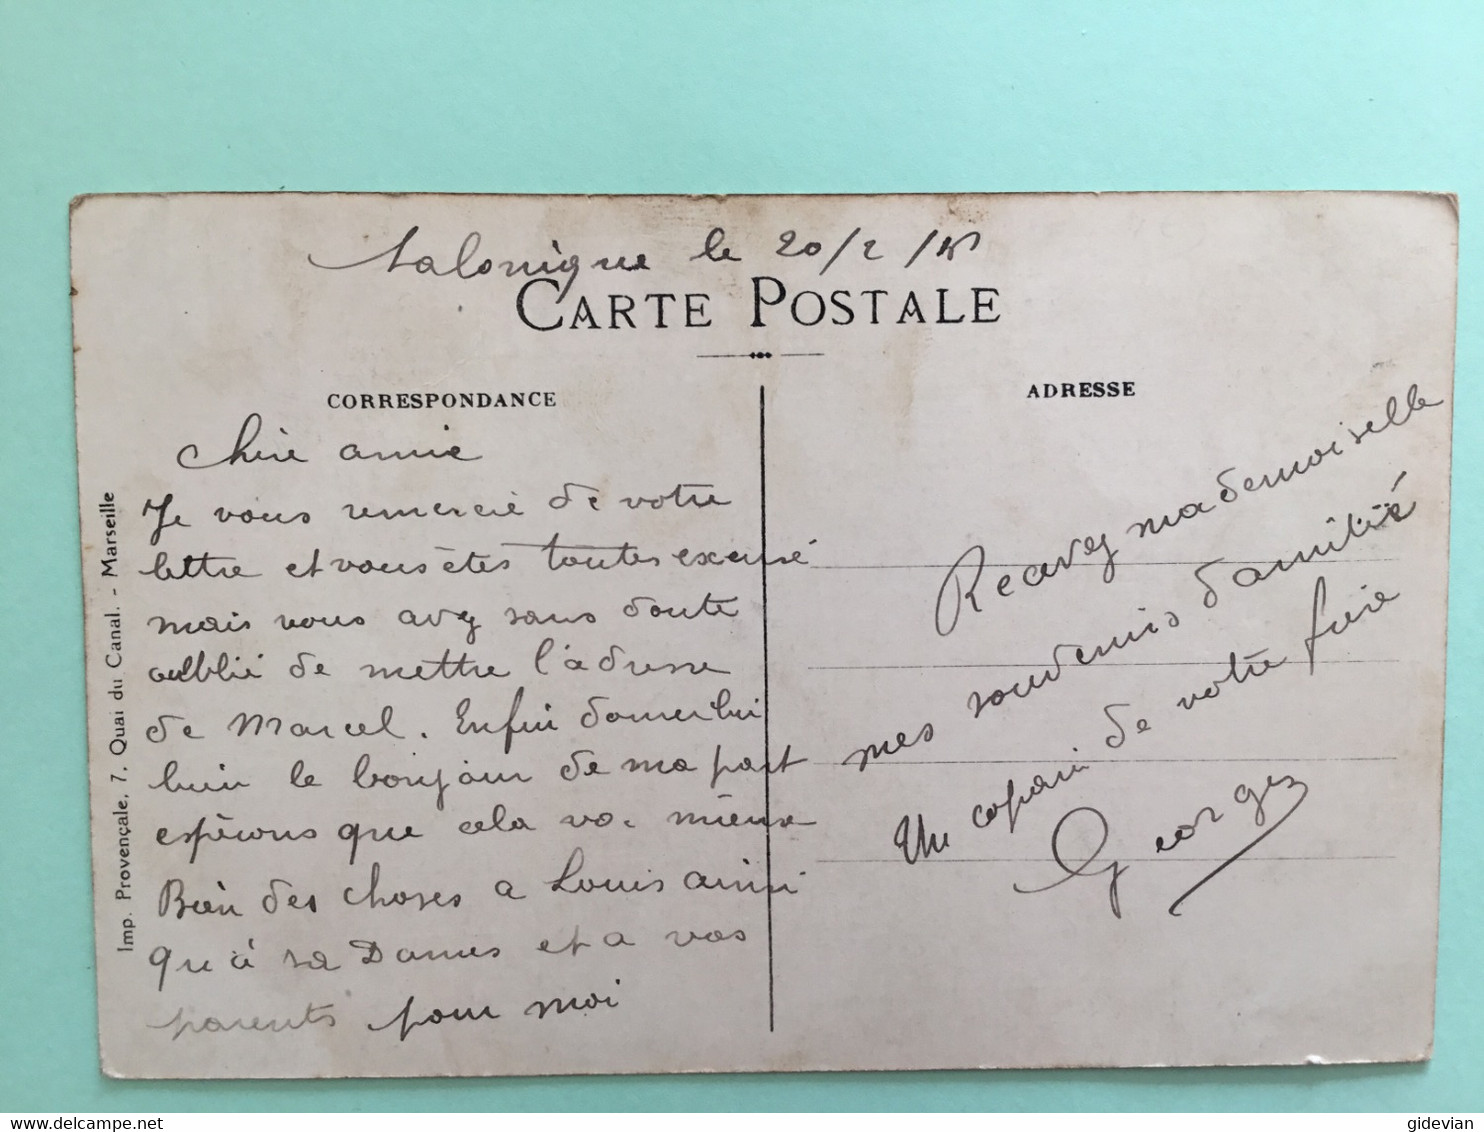 Salonique le 20/2/18
CARTE POSTALE
CORRESPONDANCE
ADRESSE
Chère amie
Je vous remercie de votre
lettre et vous êtes toutes excusé
mais vous avez sans doute
oublié de mettre l'adresse
de Marcel. Enfin donner lui
bien le bonjour de ma part
espérons que cela va mieux
Bien des choses a Louis ainsi
qu'à sa Dames et a vos
parents pour moi
Recevez mademoiselle
mes souvenirs d'amitié
Un copain de votre frère
Georges
Imp. Provençale, 7, Quai du Canal. - Marseille
gidevian